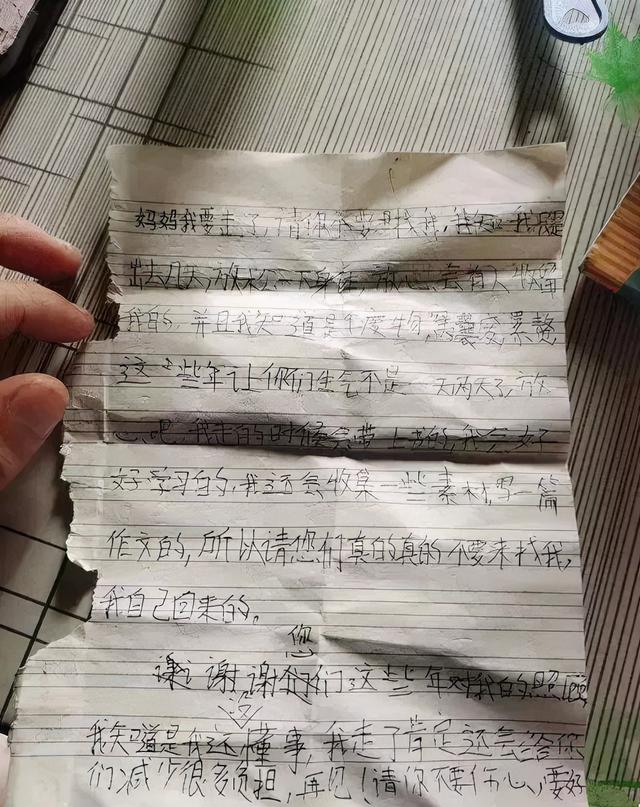 妈妈我要走了,请你不要找我,我知我只是
出去几天,放松一下身,放心,会有人收留
我自的,并且我知道是年废物,累赘
这些年让你们生气不是一天两天了,放
心吧,我走的时候会带上书的,我会好
好学习的,我还会收集一些素材,写一篇
作文的,所以请您们真的真的不要来找我,
我自己回来的。
您
谢谢谢们这些年对我的照顾
没
我知道是我还懂事,我走了肯定还会给你
们减少很多负担,再见!请你不要伤心,要好